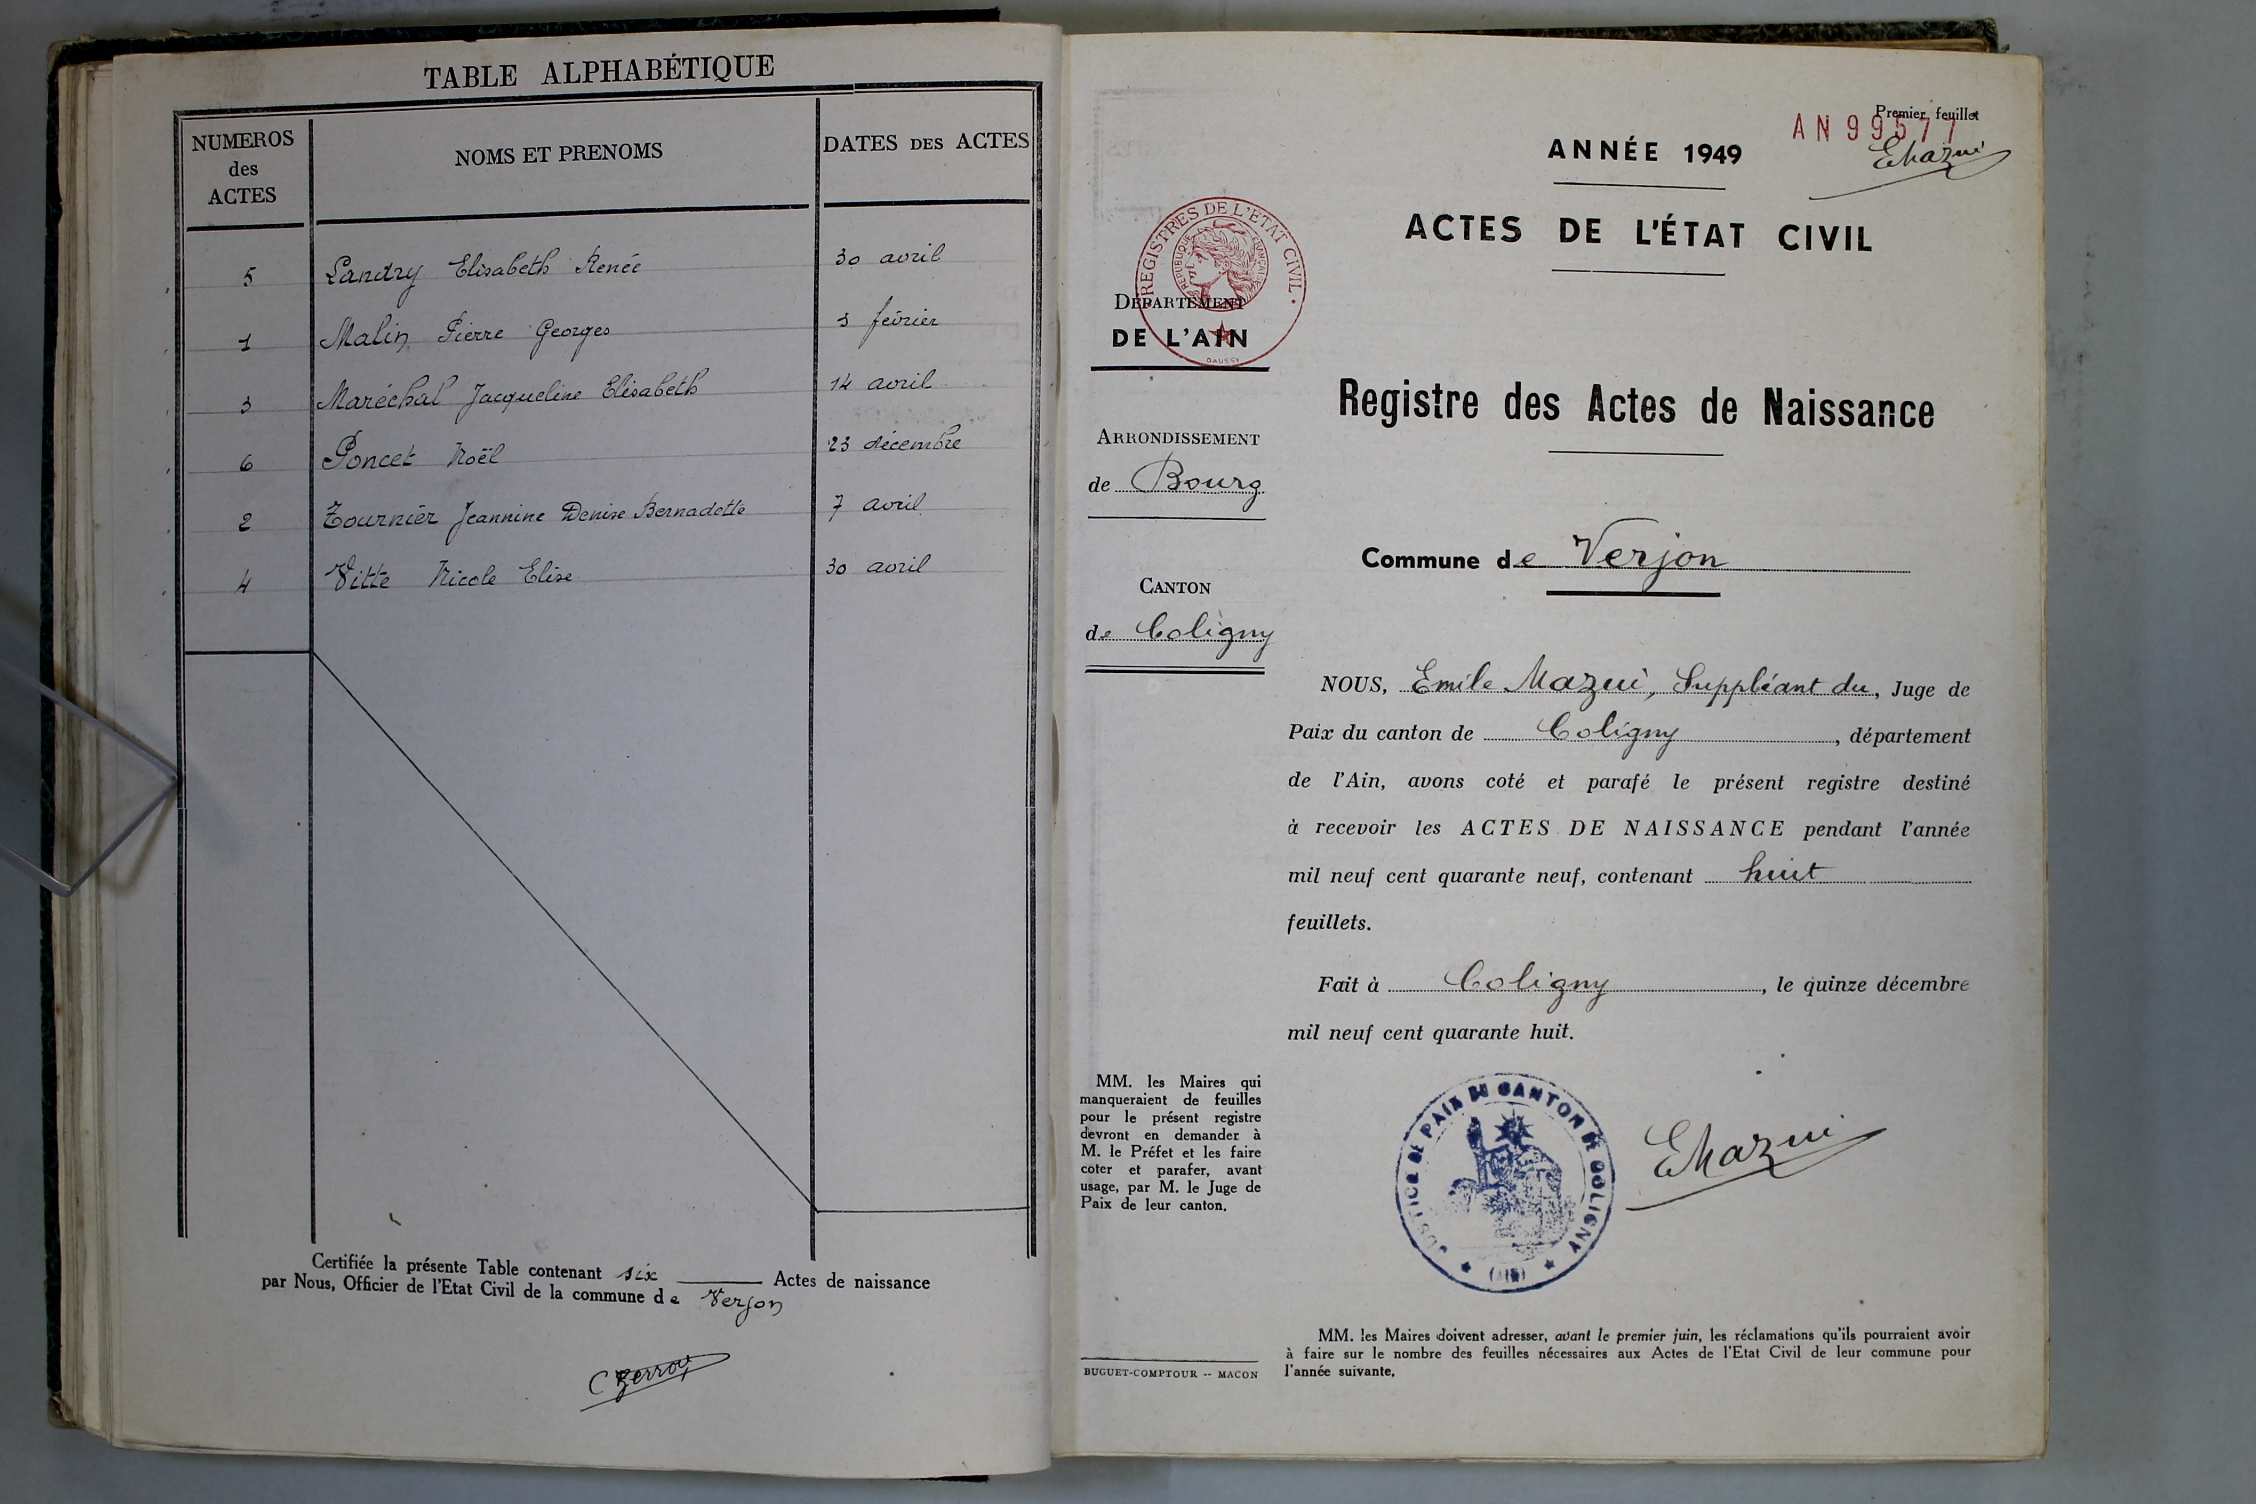 TABLE ALPHABÉTIQUE
NUMEROS des ACTES
NOMS ET PRENOMS
DATES DES ACTES
5 Landry Elisabeth Renée 30 avril
1 Malin Pierre Georges 3 février
3 Maréchal Jacqueline Elisabeth 14 avril
6 Poncet Noël 23 décembre
2 Tournier Jeannine Denise Bernadette 7 avril
4 Vitte Nicole Elise 30 avril
Certifiée la présente Table contenant six Actes de naissance
par Nous, Officier de l'Etat Civil de la commune de Verjon
Premier feuillet
AN 99577
EMazui
ANNÉE 1949
ACTES DE L'ÉTAT CIVIL
REGISTRES DE L'ETAT CIVIL
REPUBLIQUE FRANÇAISE
DAUSSY
DÉPARTEMENT
DE L'AIN
Registre des Actes de Naissance
ARRONDISSEMENT
de Bourg
Commune de Verjon
CANTON
de Coligny
NOUS, Emile Mazui, Suppléant du, Juge de
Paix du canton de Coligny, département
de l'Ain, avons coté et parafé le présent registre destiné
à recevoir les ACTES DE NAISSANCE pendant l'année
mil neuf cent quarante neuf, contenant huit
feuillets.
Fait à Coligny, le quinze décembre
mil neuf cent quarante huit.
MM. les Maires qui
manqueraient de feuilles
pour le présent registre
devront en demander à
M. le Préfet et les faire
coter et parafer, avant
usage, par M. le Juge de
Paix de leur canton.
JUSTICE DE PAIX DU CANTON DE COLIGNY
(AIN)
EMazui
MM. les Maires doivent adresser, avant le premier juin, les réclamations qu'ils pourraient avoir
à faire sur le nombre des feuilles nécessaires aux Actes de l'Etat Civil de leur commune pour
l'année suivante.
BUGUET-COMPTOUR -- MACON